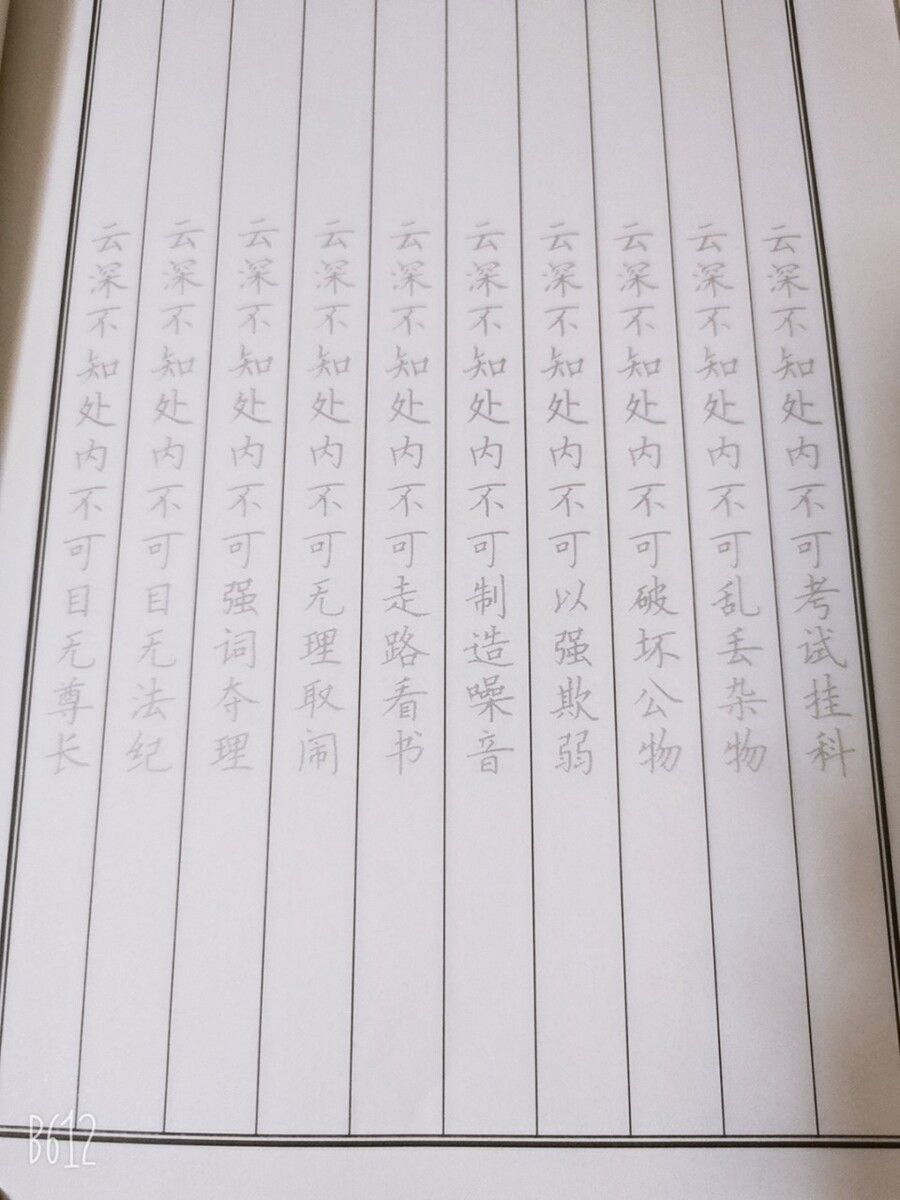 云深不知处内不可考试挂科
云深不知处内不可乱丢杂物
云深不知处内不可破坏公物
云深不知处内不可以强欺弱
云深不知处内不可制造噪音
云深不知处内不可走路看书
云深不知处内不可无理取闹
云深不知处内不可强词夺理
云深不知处内不可目无法纪
云深不知处内不可目无尊长
B612